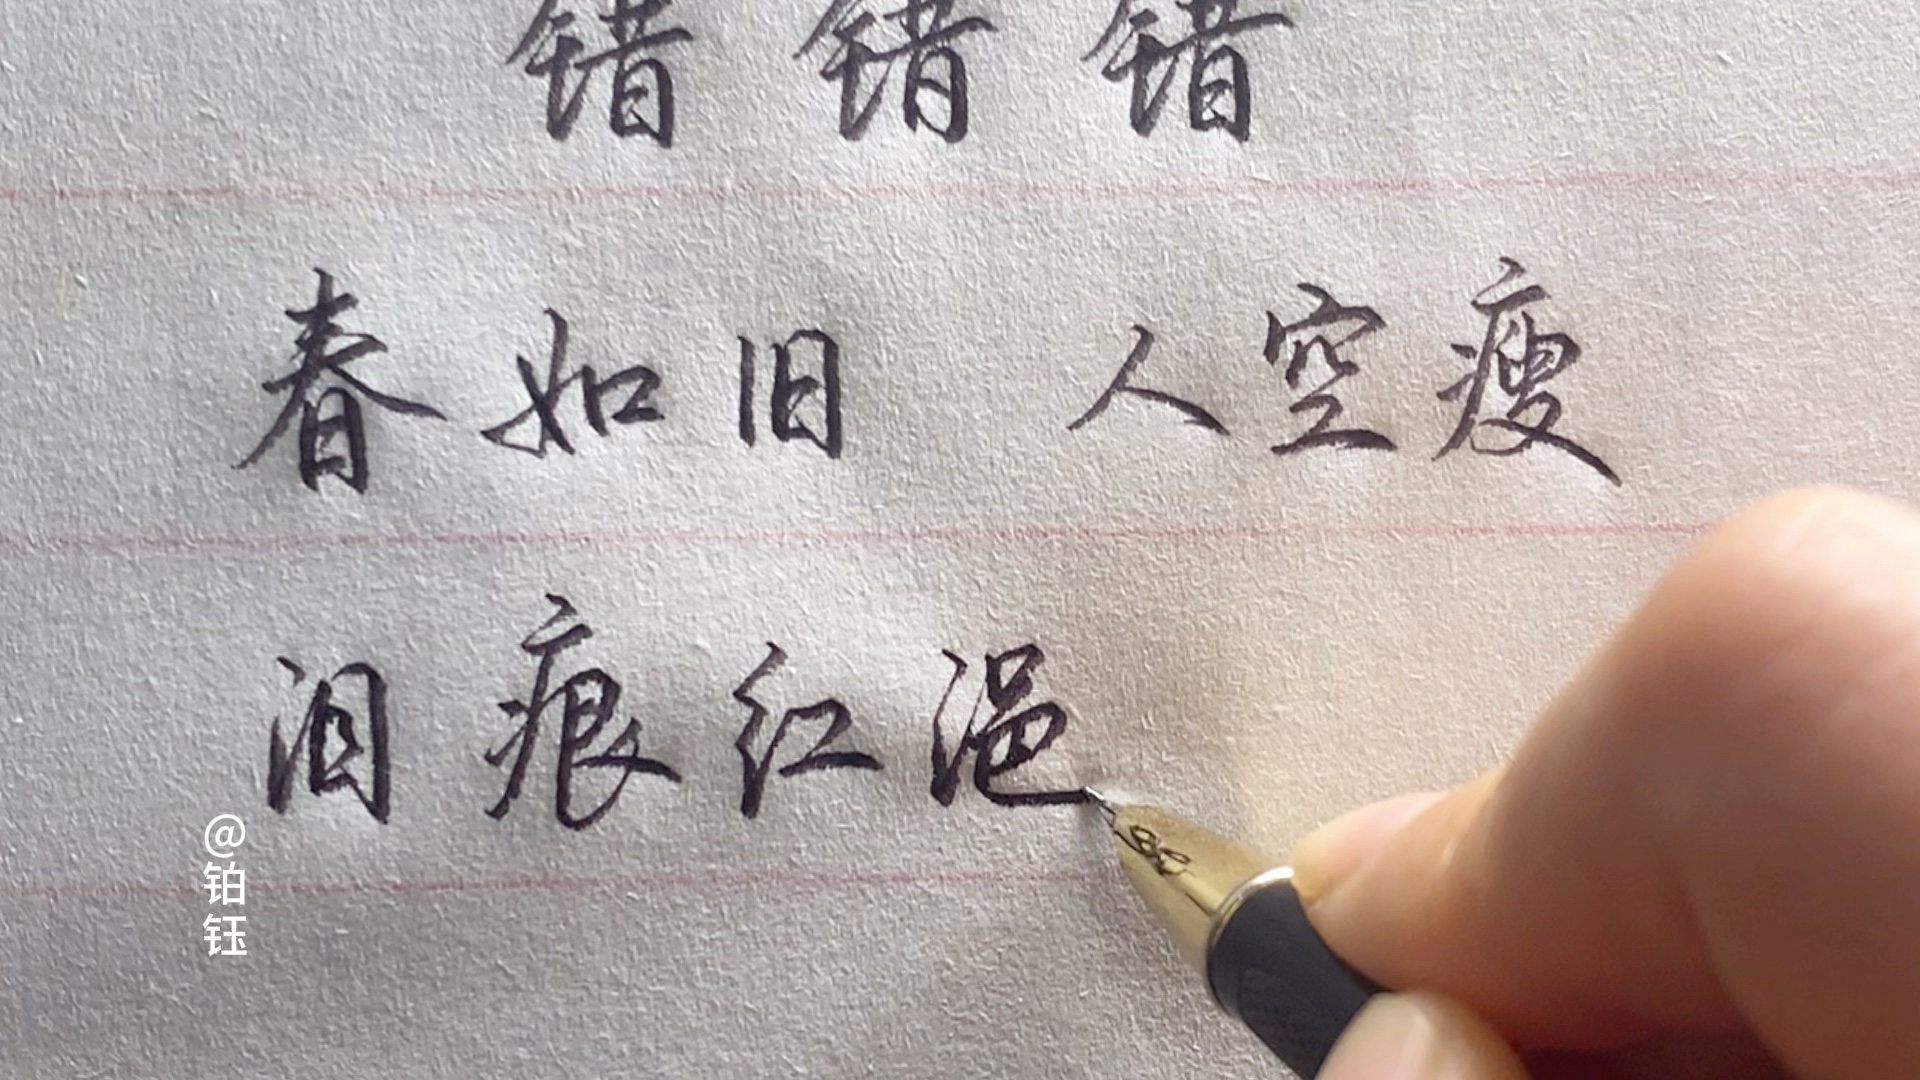 错 错 错
春如旧 人空瘦
泪痕红浥
@铂钰